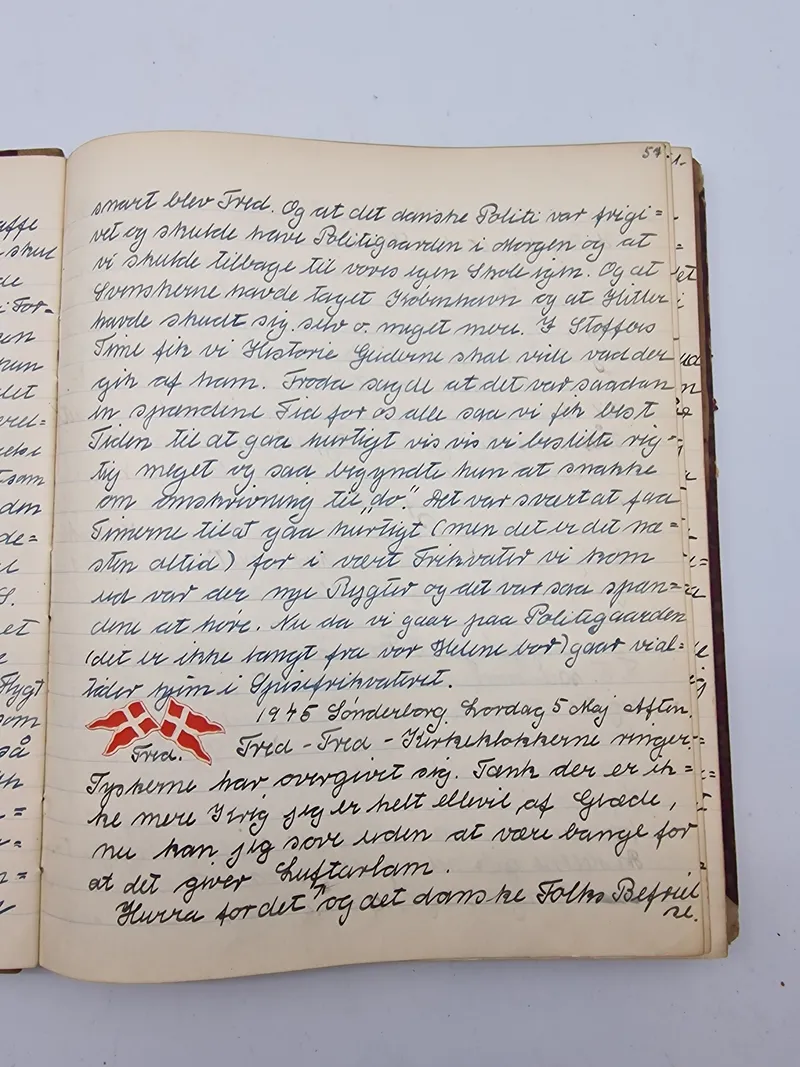 57.
snart blev Fred. Og at det danske Politi var frigi=
vet og skulde have Politigaarden i Morgen og at
vi skulde tilbage til vores egen Skole igen. Og at
Svenskerne havde taget København og at Hitler
havde skudt sig selv o. meget mere. I Stoffers
Time fik vi Historie Guderne skal vide vad der
gik af ham. Froda sagde at det var saadan
en spændene Tid for os alle saa vi fik best
Tiden til at gaa hurtigt vis vis vi bestilte rig=
tig meget og saa begyndte hun at snakke
om omskrivning til „do." Det var svært at faa
Timerne til at gaa hurtigt (men det er det næ=
sten altid) for i vært Frikvater vi kom
ud var der nye Rygter og det var saa spæn=
dene at høre. Nu da vi gaar paa Politigaarden
(det er ikke langt fra vor Helene bor) gaar vi al=
tider hjem i Spisefrikvateret.
1945 Sønderborg Lørdag 5 Maj Aften.
Fred.
Fred - Fred - Kirkeklokkerne ringer.
Tyskerne har overgivet sig. Tænk der er ik=
ke mere Krig jeg er helt ellevil af Glæde,
nu kan jeg sove uden at være bange for
at det giver Luftarlam.
Hurra for det og det danske Folks Befriel
se.